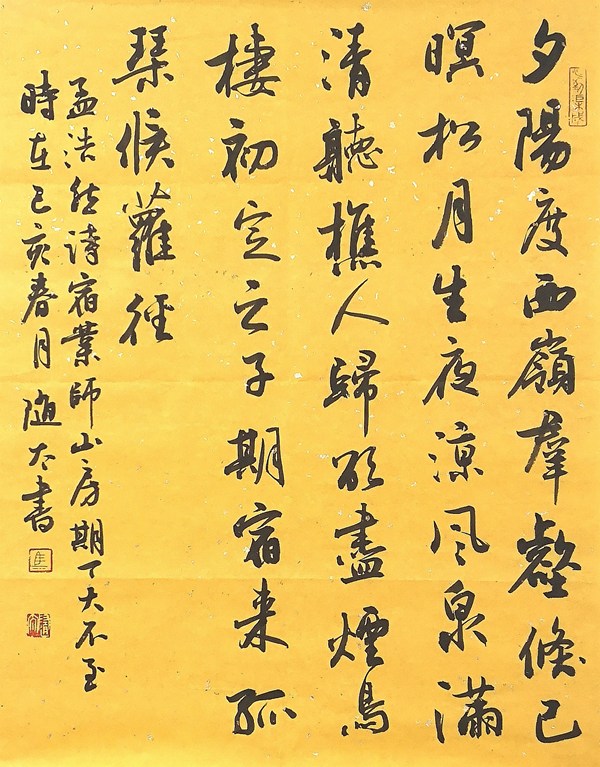 夕陽度西嶺羣壑倏已
暝松月生夜涼風泉滿
清聽樵人歸欲盡煙鳥
棲初定之子期宿来孤
琴候蘿徑
孟浩然詩宿業師山房期丁大不至
時在己亥春月随书